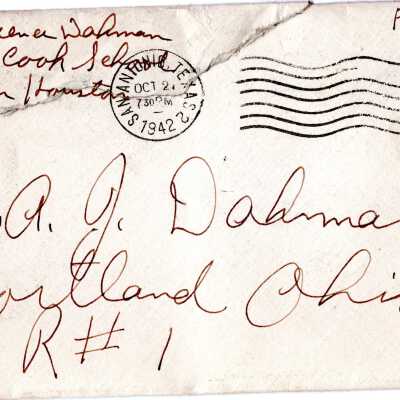 Dahman
Cook School
Houston
SAN ANTONIO, TEXAS
OCT 2
7 30 PM
1942
2
A. J. Dahma
ortland Ohi
R # 1